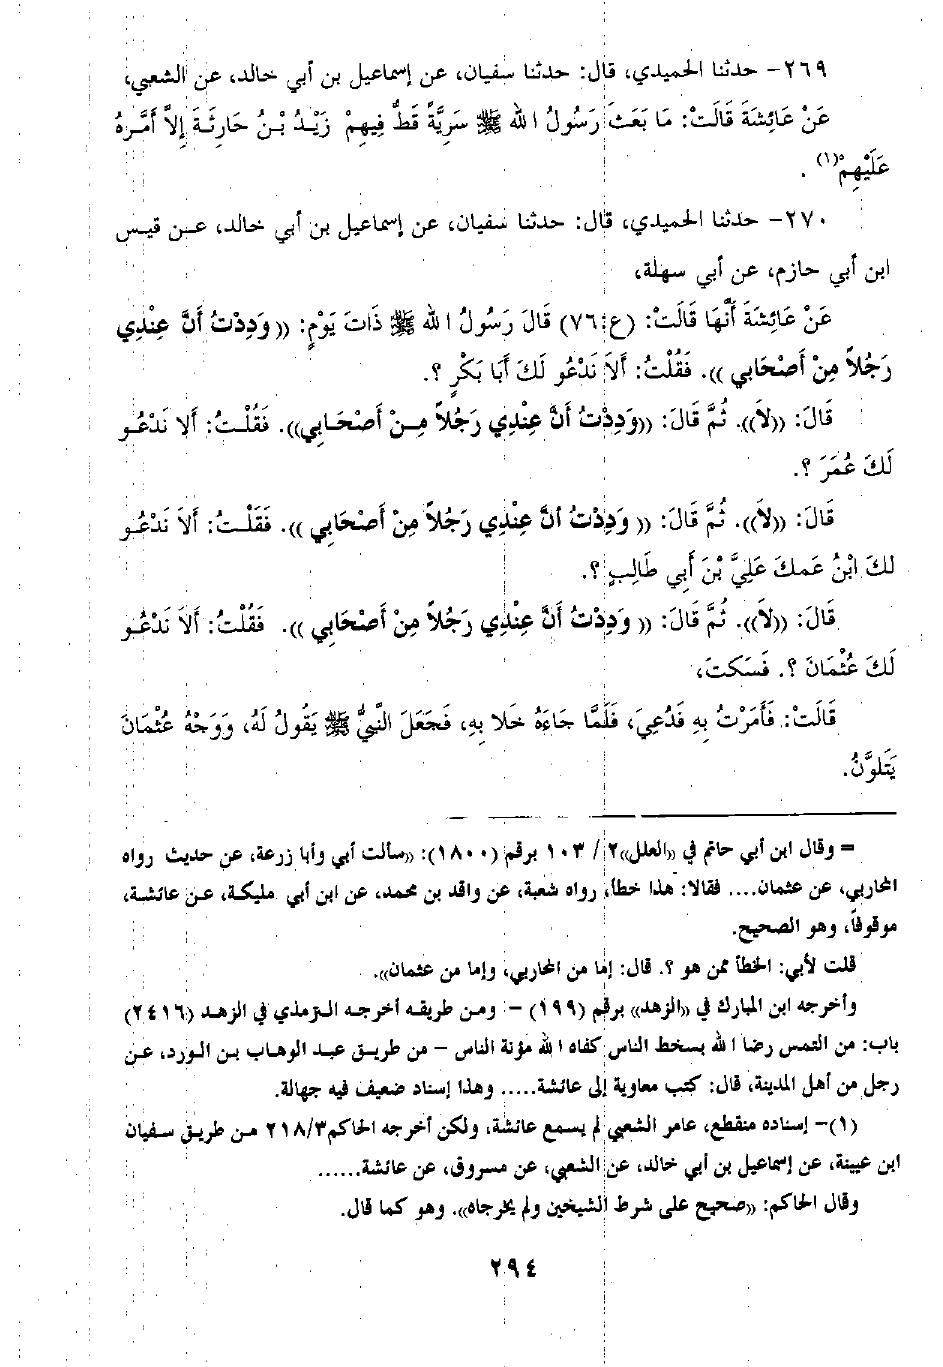 ٢٦٩- حدثنا الحميدي، قال: حدثنا سفيان، عن إسماعيل بن أبي خالد، عن الشعبي،
عَنْ عَائِشَةَ قَالَتْ: مَا بَعَثَ رَسُولُ اللهِ ﷺ سَرِيَّةً قَطُّ فِيهِمْ زَيْدُ بْنُ حَارِثَةَ إِلاَّ أَمَّرَهُ
عَلَيْهِمْ(١) .
٢٧٠- حدثنا الحميدي، قال: حدثنا سفيان، عن إسماعيل بن أبي خالد، عن قيس
ابن أبي حازم، عن أبي سهلة،
عَنْ عَائِشَةَ أَنَّهَا قَالَتْ: (ع:٧٦) قَالَ رَسُولُ اللهِ ﷺ ذَاتَ يَوْمٍ: «وَدِدْتُ أَنَّ عِنْدِي
رَجُلاً مِنْ أَصْحَابِي». فَقُلْتُ: أَلاَ نَدْعُو لَكَ أَبَا بَكْرٍ ؟.
قَالَ: «لاَ». ثُمَّ قَالَ: «وَدِدْتُ أَنَّ عِنْدِي رَجُلاً مِنْ أَصْحَابِي». فَقُلْتُ: أَلا نَدْعُو
لَكَ عُمَرَ ؟.
قَالَ: «لاَ». ثُمَّ قَالَ: « وَدِدْتُ أنَّ عِنْدِي رَجُلاً مِنْ أَصْحَابِي ». فَقَلْتُ: أَلاَ نَدْعُو
لكَ ابْنُ عَمكَ عَلِيَّ بْنَ أَبِي طَالِبٍ ؟.
قَالَ: «لاَ». ثُمَّ قَالَ: « وَدِدْتُ أَنَّ عِنْدِي رَجُلاً مِنْ أَصْحَابِي ». فَقُلْتُ: أَلاَ نَدْعُو
لَكَ عُثْمَانَ ؟. فَسَكتَ،
قَالَتْ: فَأَمَرْتُ بِهِ فَدُعِيَ، فَلَمَّا جَاءَهُ خَلا بِهِ، فَجَعَلَ النَّبِيُّ ﷺ يَقُولُ لَهُ، وَوَجْهُ عُثْمَانَ
يَتَلَوَّنُ.
= وقال ابن أبي حاتم في «العلل»٢/ ١٠٣ برقم (١٨٠٠): «سألت أبي وأبا زرعة، عن حديث رواه
المحاربي، عن عثمان.... فقالا: هذا خطأ، رواه شعبة، عن واقد بن محمد، عن ابن أبي مليكة، عن عائشة،
موقوفاً، وهو الصحيح.
قلت لأبي: الخطأ ممن هو ؟. قال: إما من المحاربي، وإما من عثمان».
وأخرجه ابن المبارك في «الزهد» برقم (١٩٩) - ومن طريقه أخرجه الترمذي في الزهد (٢٤١٦)
باب: من التمس رضا الله بسخط الناس كفاه الله مؤنة الناس - من طريق عبد الوهاب بن الورد، عن
رجل من أهل المدينة، قال: كتب معاوية إلى عائشة..... وهذا إسناد ضعيف فيه جهالة.
(١)- إسناده منقطع، عامر الشعبي لم يسمع عائشة، ولكن أخرجه الحاكم٢١٨/٣ من طريق سفيان
ابن عيينة، عن إسماعيل بن أبي خالد، عن الشعبي، عن مسروق، عن عائشة......
وقال الحاكم: «صحيح على شرط الشيخين ولم يخرجاه». وهو كما قال.
٢٩٤